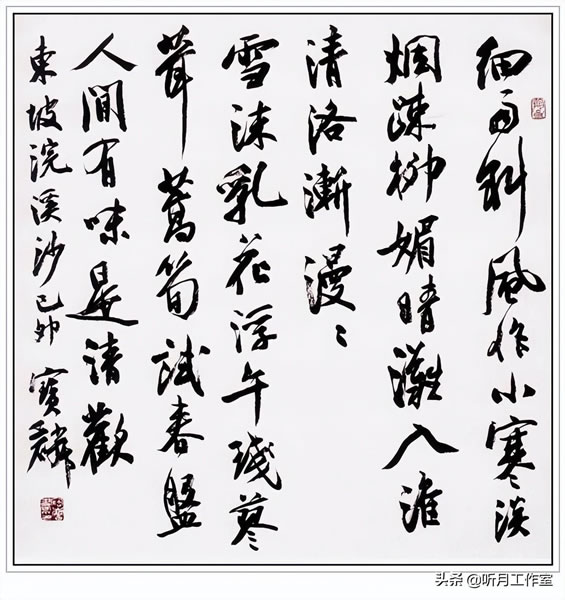 細雨斜風作小寒淡
烟疎柳媚晴灘入淮
清洛漸漫〻
雪沫乳花浮午琖蓼
茸蒿筍試春盤
人間有味是清歡
東坡浣溪沙己卯寶麟
头条 @听月工作室